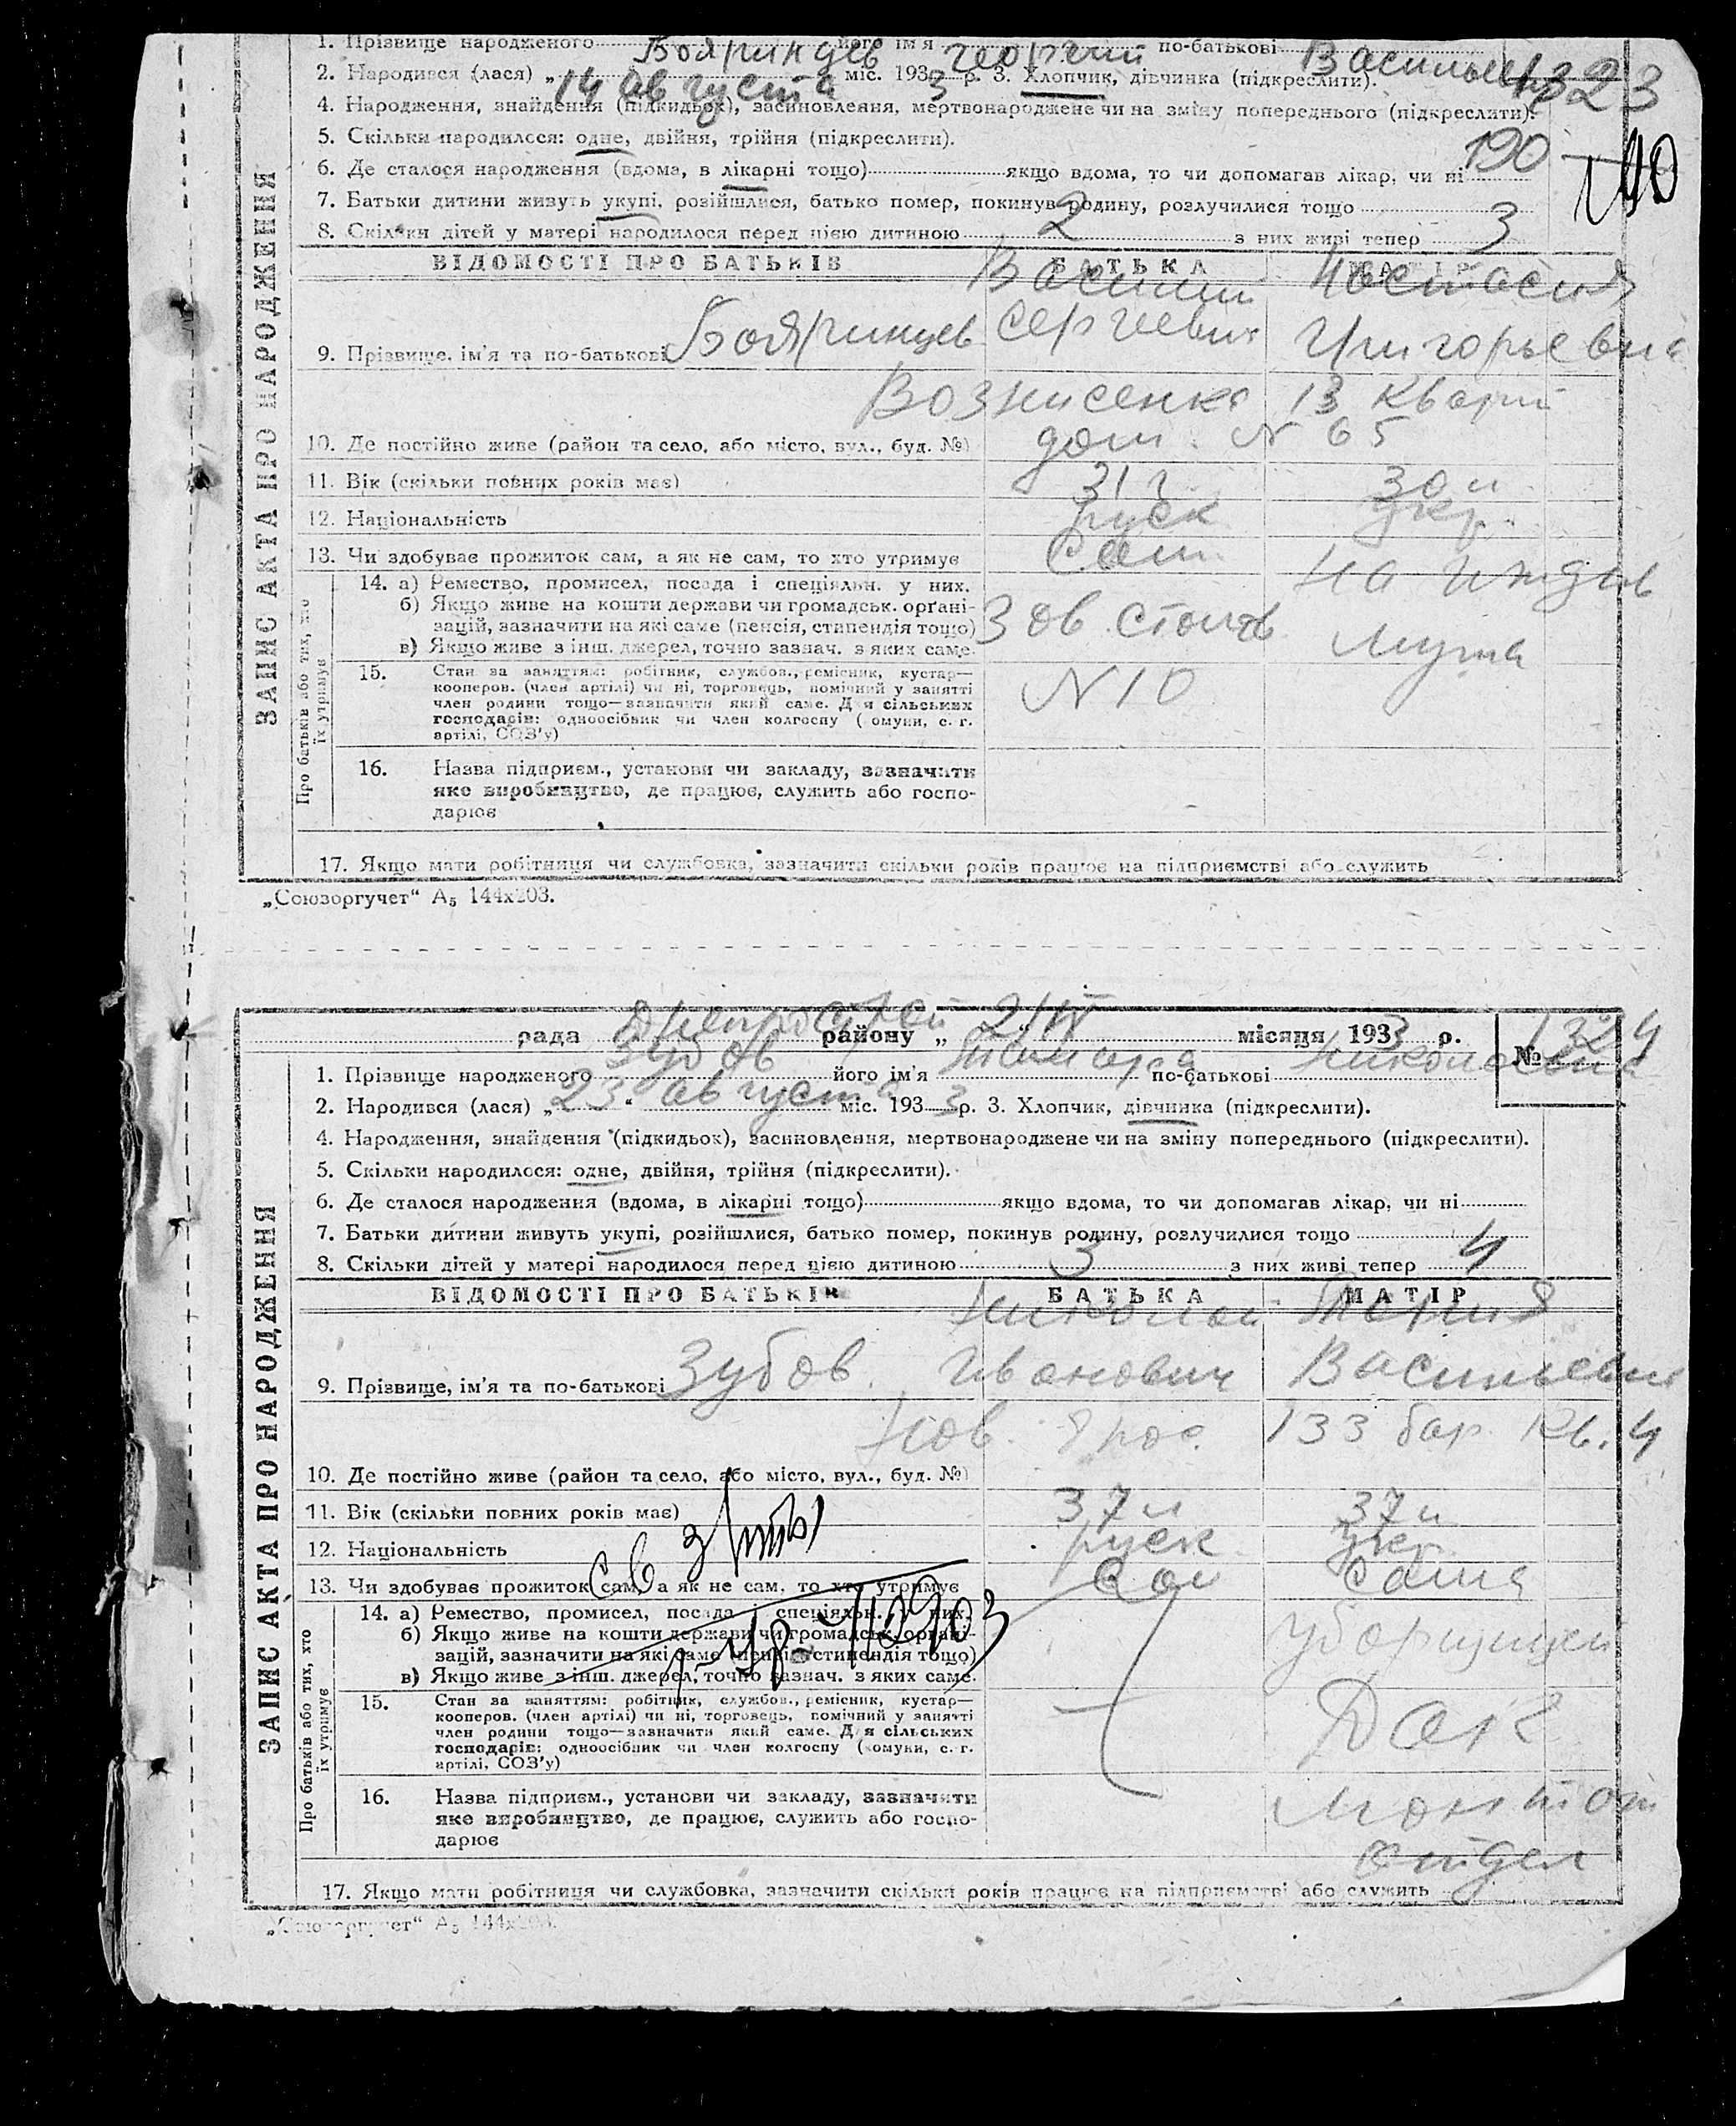 1. Прізвище народженого Бояринцев його ім'я Георгий по-батькові Васильев 1323
2. Народився (лася) „14 августа міс. 1933 р. 3. Хлопчик, дівчинка (підкреслити).
4. Народження, знайдення (підкидьок), засиновлення, мертвонароджене чи на зміну попереднього (підкреслити).
5. Скільки народилося: одне, двійня, трійня (підкреслити).
190
6. Де сталося народження (вдома, в лікарні тощо) якщо вдома, то чи допомагав лікар, чи ні
7. Батьки дитини живуть укупі, розійшлися, батько помер, покинув родину, розлучилися тощо
8. Скільки дітей у матері народилося перед цією дитиною 2 з них живі тепер 3
ВІДОМОСТІ ПРО БАТЬКІВ БАТЬКА МАТІР
Василий Настасия
9. Прізвище, ім'я та по-батькові Бояринцев Сергеевич Григорьевна
Вознисенка 13 Кварт
10. Де постійно живе (район та село, або місто, вул., буд. №) дом. N 65
11. Вік (скільки повних років має) 31 г 30 л
12. Національність руск укр.
13. Чи здобуває прожиток сам, а як не сам, то хто утримує Сам на иждив
мужа
14. а) Ремество, промисел, посада і спеціяльн. у них.
б) Якщо живе на кошти держави чи громадськ. орґані-
зацій, зазначити на які саме (пенсія, стипендія тощо) Зав. столов
в) Якщо живе з інш. джерел, точно зазнач. з яких саме.
N 10
15. Стан за заняттям: робітник, службов., ремісник, кустар—
кооперов. (член артілі) чи ні, торговець, помічний у занятті
член родини тощо—зазначити який саме. Для сільських
господарів: одноосібник чи член колгоспу (комуни, с. г.
артілі, СОЗ'у)
16. Назва підприєм., установи чи закладу, зазначити
яке виробництво, де працює, служить або госпо-
дарює
17. Якщо мати робітниця чи службовка, зазначити скільки років працює на підприємстві або служить
ЗАПИС АКТА ПРО НАРОДЖЕННЯ
Про батьків або тих, хто
їх утримує
„Союзоргучет“ А5 144х203.
рада района „ місяця 1933 р. № 1324
1. Прізвище народженого Зубов його ім'я Тамара по-батькові Николаевна
2. Народився (лася) „23“ августа міс. 1933 р. 3. Хлопчик, дівчинка (підкреслити).
4. Народження, знайдення (підкидьок), засиновлення, мертвонароджене чи на зміну попереднього (підкреслити).
5. Скільки народилося: одне, двійня, трійня (підкреслити).
6. Де сталося народження (вдома, в лікарні тощо) якщо вдома, то чи допомагав лікар, чи ні
7. Батьки дитини живуть укупі, розійшлися, батько помер, покинув родину, розлучилися тощо
8. Скільки дітей у матері народилося перед цією дитиною 3 з них живі тепер 4
ВІДОМОСТІ ПРО БАТЬКІВ БАТЬКА МАТІР
Николай Мария
9. Прізвище, ім'я та по-батькові Зубов Иванович Васильевна
133 бар. Кв. 4
10. Де постійно живе (район та село, або місто, вул., буд. №)
11. Вік (скільки повних років має) 37 л 37 л
12. Національність руск укр.
13. Чи здобуває прожиток сам, а як не сам, то хто утримує Сам сама
14. а) Ремество, промисел, посада і спеціяльн. у них.
б) Якщо живе на кошти держави чи громадськ. орґані-
зацій, зазначити на які саме (пенсія, стипендія тощо) уборщицей
в) Якщо живе з інш. джерел, точно зазнач. з яких саме.
15. Стан за заняттям: робітник, службов., ремісник, кустар—
кооперов. (член артілі) чи ні, торговець, помічний у занятті
член родини тощо—зазначити який саме. Для сільських
господарів: одноосібник чи член колгоспу (комуни, с. г.
артілі, СОЗ'у)
16. Назва підприєм., установи чи закладу, зазначити
яке виробництво, де працює, служить або госпо-
дарює
отдел
17. Якщо мати робітниця чи службовка, зазначити скільки років працює на підприємстві або служить
ЗАПИС АКТА ПРО НАРОДЖЕННЯ
Про батьків або тих, хто
їх утримує
„Союзоргучет“ А5 144х203.